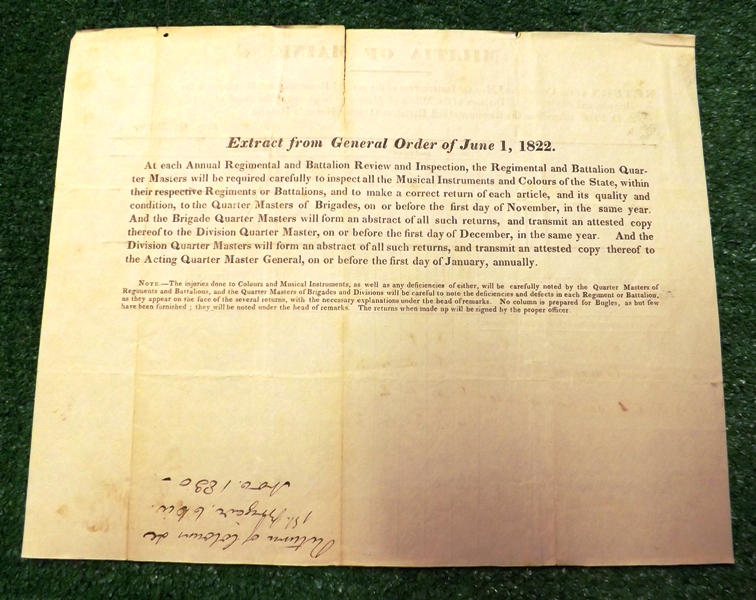 Extract from General Order of June 1, 1822.
At each Annual Regimental and Battalion Review and Inspection, the Regimental and Battalion Quar-
ter Masters will be required carefully to inspect all the Musical Instruments and Colours of the State, within
their respective Regiments or Battalions, and to make a correct return of each article, and its quality and
condition, to the Quarter Masters of Brigades, on or before the first day of November, in the same year.
And the Brigade Quarter Masters will form an abstract of all such returns, and transmit an attested copy
thereof to the Division Quarter Master, on or before the first day of December, in the same year. And the
Division Quarter Masters will form an abstract of all such returns, and transmit an attested copy thereof to
the Acting Quarter Master General, on or before the first day of January, annually.
NOTE.—The injuries done to Colours and Musical Instruments, as well as any deficiencies of either, will be carefully noted by the Quarter Masters of
Regiments and Battalions, and the Quarter Masters of Brigades and Divisions will be careful to note the deficiencies and defects in each Regiment or Battalion,
as they appear on the face of the several returns, with the necessary explanations under the head of remarks. No column is prepared for Bugles, as but few
have been furnished; they will be noted under the head of remarks. The returns when made up will be signed by the proper officer.
Return of Colours &c
1st
Nov. 1830
MILITIA OF MAINE